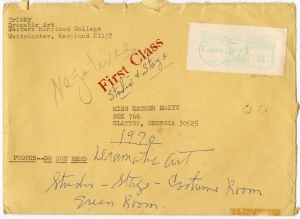 Tribby
Dramatic Art
Western Maryland College
Westminster, Maryland 21157
Negatives
First Class
Studio & Stage
MISS ESTHER SMITH
BOX 766
CLAYTON, GEORGIA 30525
1970
PHOTOS--DO NOT BEND
Dramatic Art
Studio - Stage - Costume Room
Green Room.